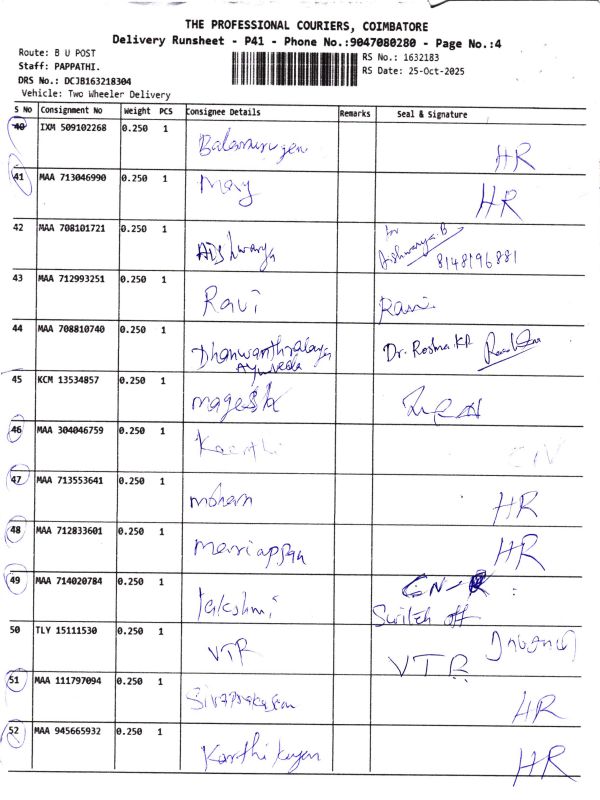 THE PROFESSIONAL COURIERS, COIMBATORE
Delivery Runsheet - P41 - Phone No.:9047080280 - Page No.:4
Route: B U POST
RS No.: 1632183
Staff: PAPPATHI.
RS Date: 25-Oct-2025
DRS No.: DCJB163218304
Vehicle: Two Wheeler Delivery
S No Consignment No Weight PCS Consignee Details Remarks Seal & Signature
40 IXM 509102268 0.250 1 Balamurugan HR
41 MAA 713046990 0.250 1 Mary HR
42 MAA 708101721 0.250 1 Aishwarya for Aishwarya.B 8148196881
43 MAA 712993251 0.250 1 Ravi Ravi
44 MAA 708810740 0.250 1 Dhanwanthralaya Ayurveda Dr. Roshma KR
45 KCM 13534857 0.250 1 magesh
46 MAA 304046759 0.250 1 Keerthi CN
47 MAA 713553641 0.250 1 mohan HR
48 MAA 712833601 0.250 1 Mariappan HR
49 MAA 714020784 0.250 1 Lakshmi CN- Switch off
50 TLY 15111530 0.250 1 VTR VTR
51 MAA 111797094 0.250 1 Sivaprakasam HR
52 MAA 945665932 0.250 1 Karthikeyan HR